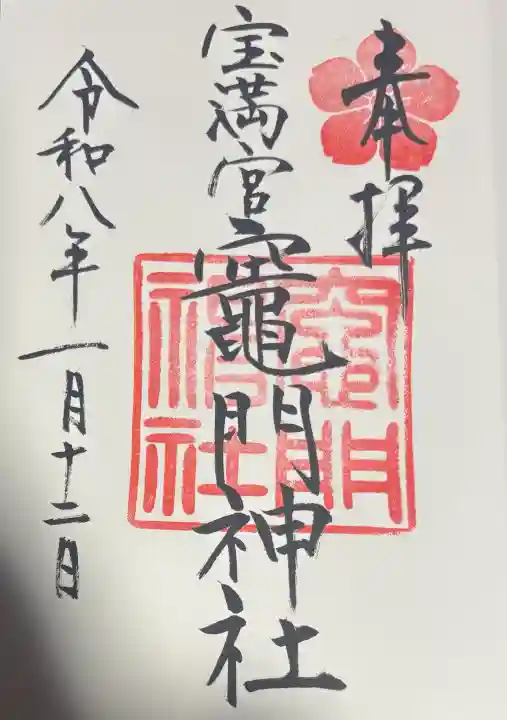 奉拝
宝満宮竈門神社
竈門
神社
令和八年一月十二日